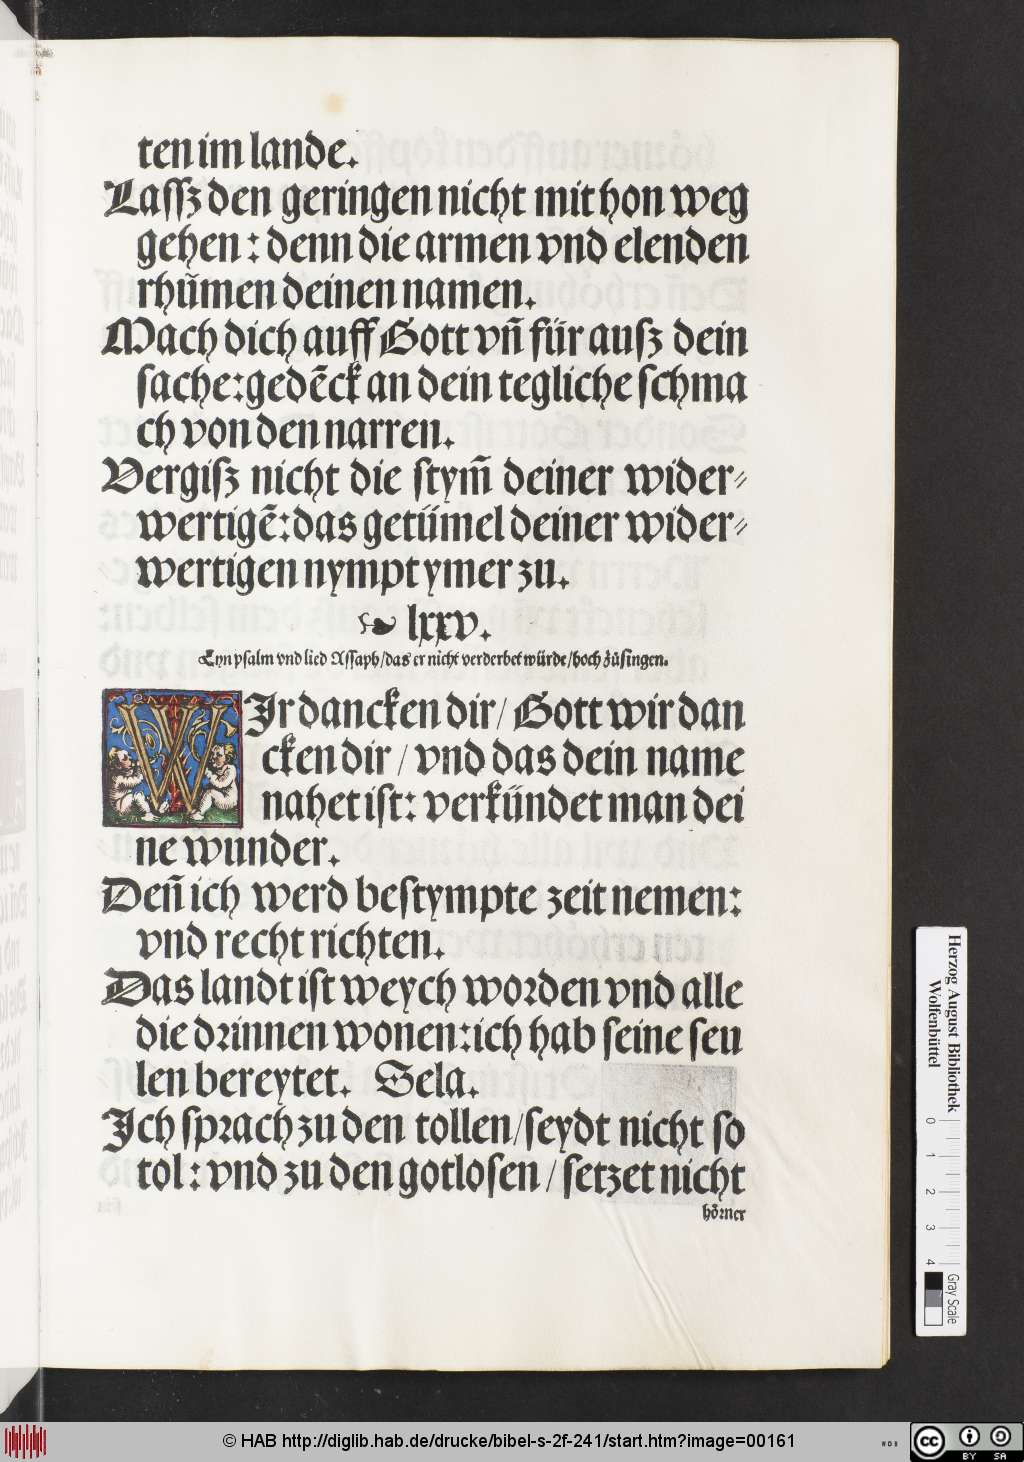 ten im lande.
Lassz den geringen nicht mit hon weg
gehen : denn die armen vnd elenden
rhům̃en deinen namen.
Mach dich auff Gott vñ für ausz dein
sache:gedẽck an dein tegliche schma
ch von den narren.
Vergisz nicht die stym̃ deiner wider⸗
wertigẽ:das getümel deiner wider⸗
wertigen nympt ymer zu.
lxxv.
Eyn psalm vnd lied Assaph/das er nicht verderbet würde/hoch zůsingen.
WIr dancken dir/ Gott wir dan
cken dir / vnd das dein name
nahet ist: verkündet man dei
ne wunder.
Deñ ich werd bestympte zeit nemen:
vnd recht richten.
Das landt ist weych worden vnd alle
die drinnen wonen:ich hab seine seu
len bereytet. Sela.
Ich sprach zu den tollen/seydt nicht so
tol : vnd zu den gotlosen / setzet nicht
hörner
Herzog August Bibliothek
Wolfenbüttel
0 1 2 3 4
Gray Scale
© HAB http://diglib.hab.de/drucke/bibel-s-2f-241/start.htm?image=00161
WDB
cc BY SA